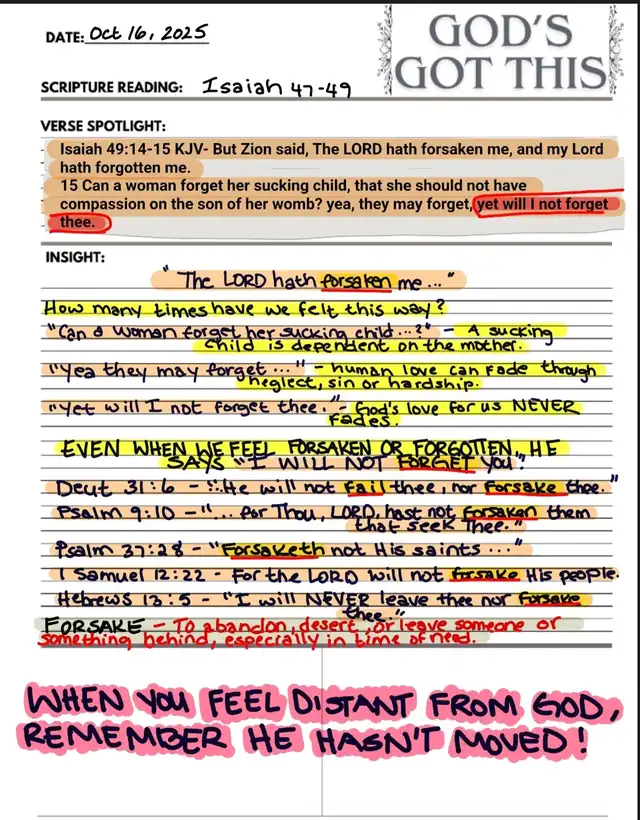 DATE: Oct 16, 2025
GOD'S
GOT THIS
SCRIPTURE READING: Isaiah 47-49
VERSE SPOTLIGHT:
Isaiah 49:14-15 KJV- But Zion said, The LORD hath forsaken me, and my Lord
hath forgotten me.
15 Can a woman forget her sucking child, that she should not have
compassion on the son of her womb? yea, they may forget, yet will I not forget
thee.
INSIGHT:
"The LORD hath forsaken me ..."
How many times have we felt this way?
"Can a woman forget her sucking child...?" - A sucking
child is dependent on the mother.
"Yea they may forget ..." - human love can fade through
neglect, sin or hardship.
"Yet will I not forget thee." - God's love for us NEVER
fades.
EVEN WHEN WE FEEL FORSAKEN OR FORGOTTEN, HE
SAYS "I WILL NOT FORGET YOU!"
Deut 31:6 - "...He will not fail thee, nor forsake thee."
Psalm 9:10 - "... for Thou, LORD, hast not forsaken them
that seek Thee."
Psalm 37:28 - "Forsaketh not His saints ..."
1 Samuel 12:22 - For the LORD will not forsake His people.
Hebrews 13:5 - "I will NEVER leave thee nor forsake
thee."
FORSAKE - To abandon, desert, or leave someone or
something behind, especially in time of need.
WHEN YOU FEEL DISTANT FROM GOD,
REMEMBER HE HASN'T MOVED!